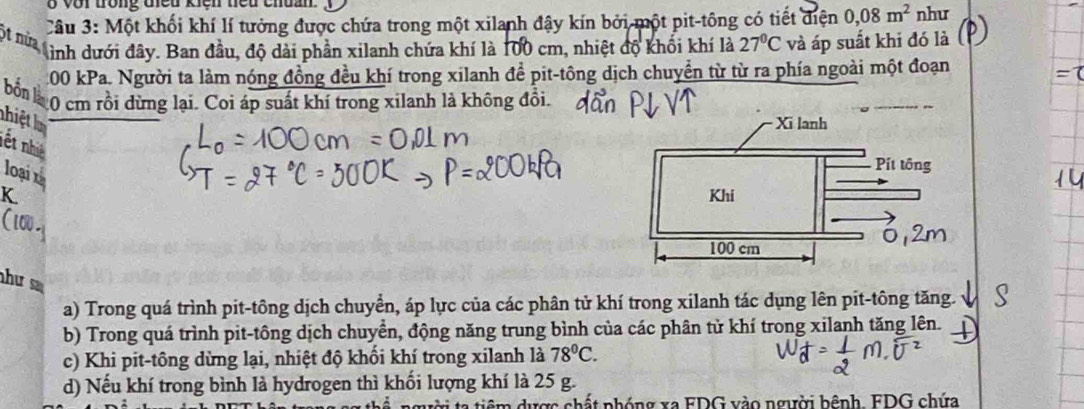 Câu 3: Một khối khí lí tưởng được chứa trong một xilanh đậy kín bởi một pit-tông có tiết diện 0,08 m² như
ột nửa hình dưới đây. Ban đầu, độ dài phần xilanh chứa khí là 100 cm, nhiệt độ khối khí là 27⁰C và áp suất khi đó là (P)
00 kPa. Người ta làm nóng đồng đều khí trong xilanh để pit-tông dịch chuyển từ từ ra phía ngoài một đoạn
bốn
0 cm rồi dừng lại. Coi áp suất khí trong xilanh là không đổi. dãn P↓ V↑
nhiệt
L₀ = 100 cm = 0,01 m
T = 27 °C = 300K → P = 200 kPa
loại
K.
(100.
Xi lanh
Pít tông
Khí
0,2m
100 cm
14
như
a) Trong quá trình pit-tông dịch chuyển, áp lực của các phân tử khí trong xilanh tác dụng lên pit-tông tăng. ↓ S
b) Trong quá trình pit-tông dịch chuyển, động năng trung bình của các phân tử khí trong xilanh tăng lên. Đ
c) Khi pit-tông dừng lại, nhiệt độ khối khí trong xilanh là 78⁰C.
Wđ = 1/2 m. v̅²
d) Nếu khí trong bình là hydrogen thì khối lượng khí là 25 g.
người ta tiêm được chất phóng xạ FDG vào người bệnh. FDG chứa